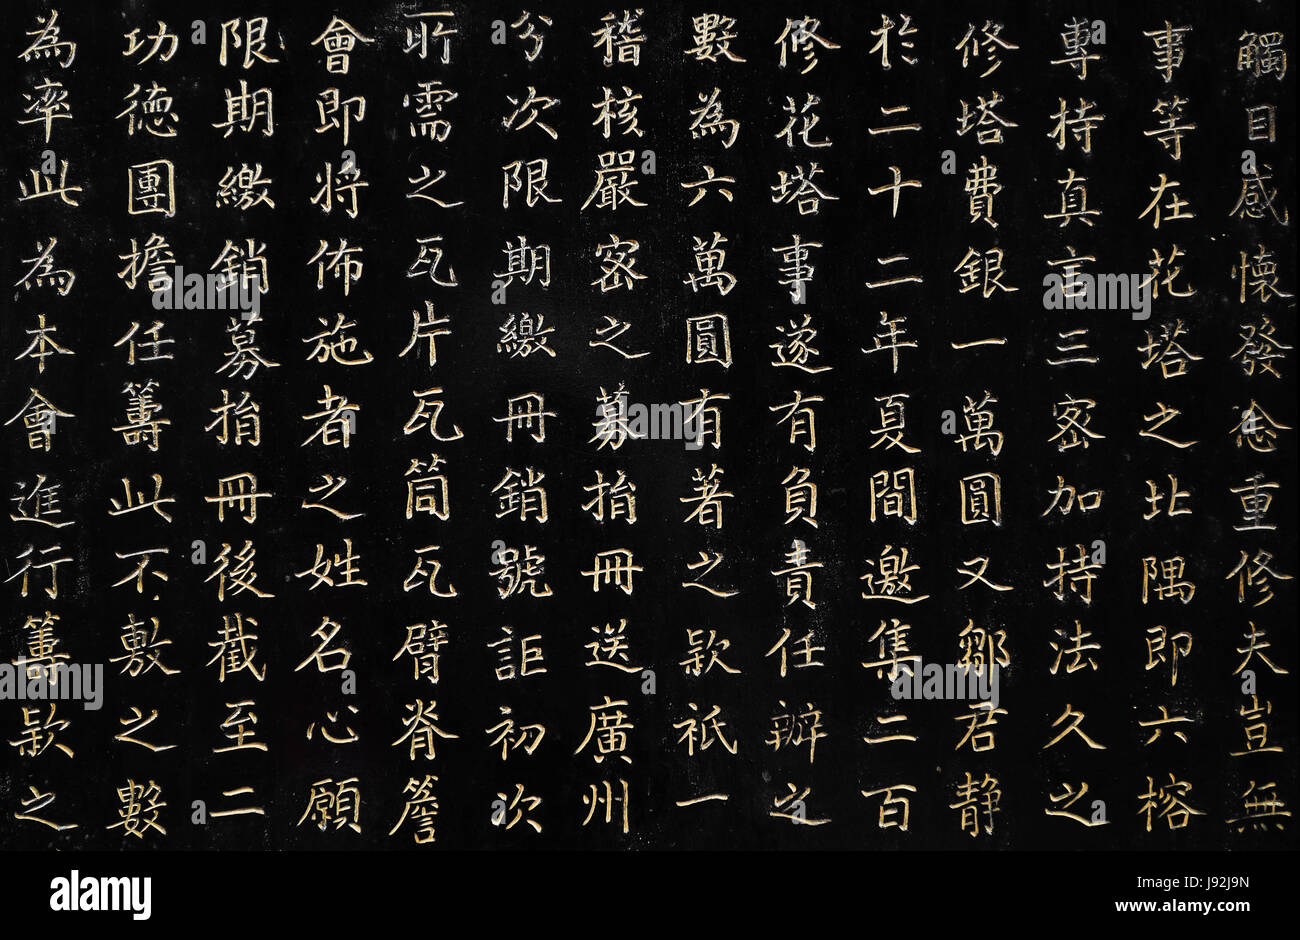 觸目感懷發念重修夫豈無
事等在花塔之北隅即六榕
專持真言三密加持法久之
修塔費銀一萬圓又鄒君静
於二十二年夏間邀集二百
修花塔事遂有負責任辦之
數為六萬圓有著之款祇一
稽核嚴密之募捐冊送廣州
分次限期繳冊銷號詎初次
所需之瓦片瓦筒瓦臂脊簷
會即将佈施者之姓名心願
限期繳銷募捐冊後截至二
功德團擔任籌此不敷之數
為率此為本會進行籌款之
alamy
Image ID: J92J9N
www.alamy.com